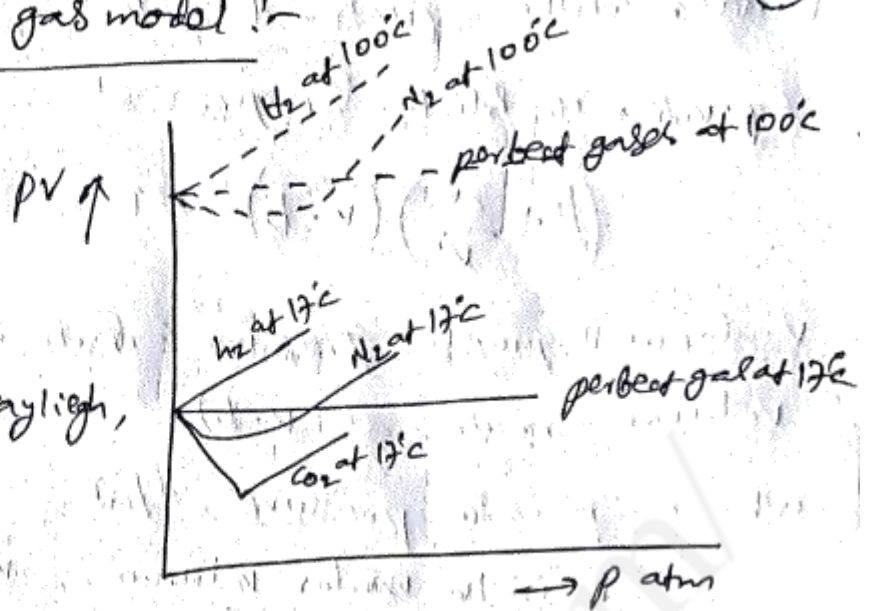 gas model :-
H2 at 100°C
N2 at 100°C
perbect gases at 100°C
PV ↑
H2 at 17°C
N2 at 17°C
perbect gas at 17°C
ayliegh,
CO2 at 17°C
→ P atm